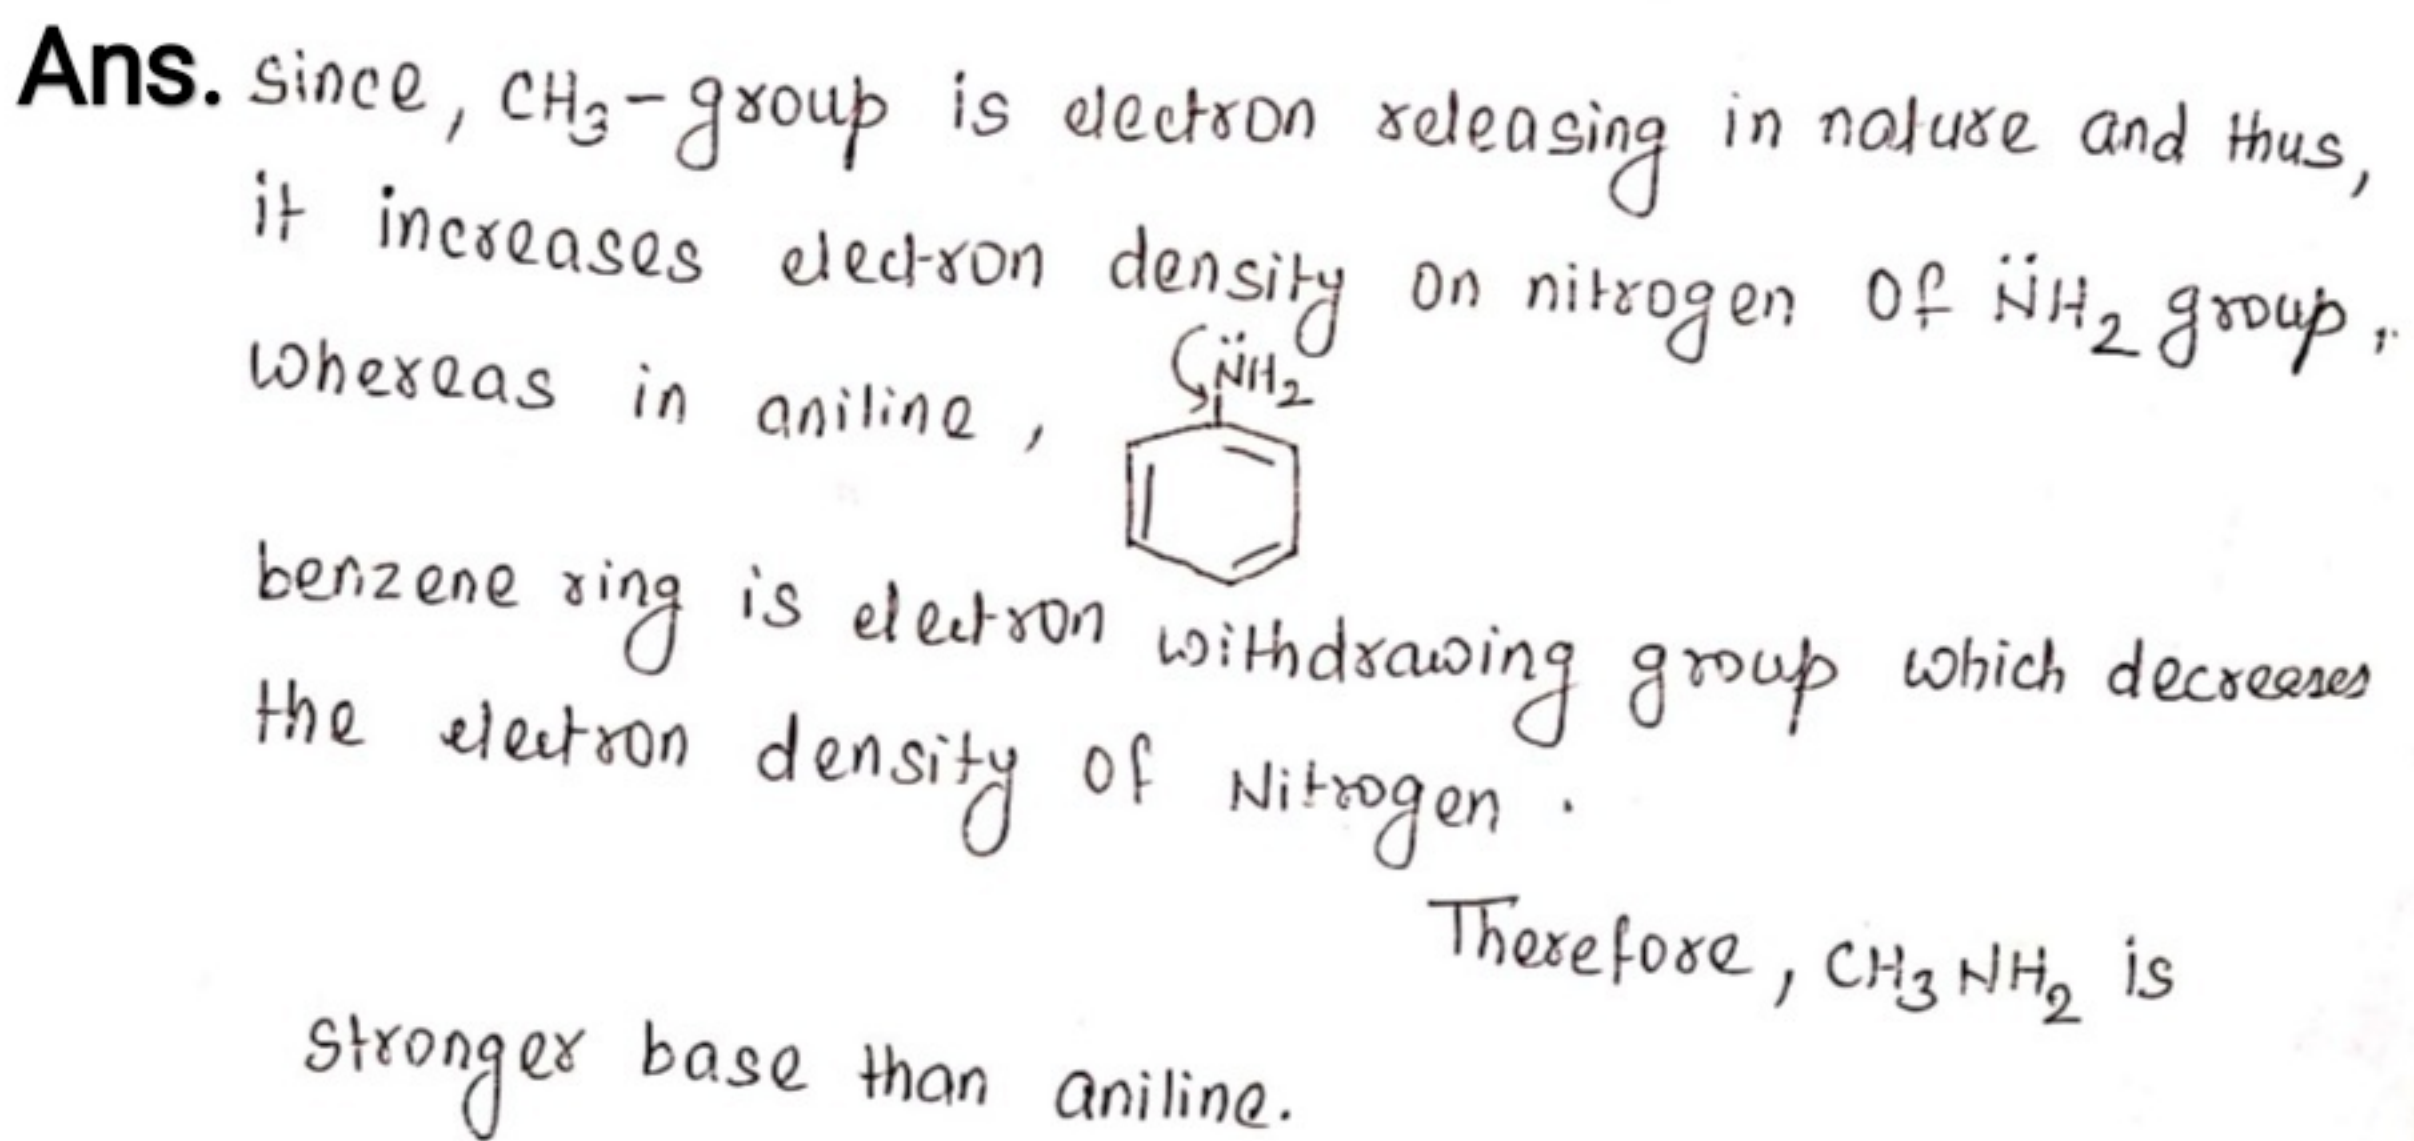 Ans. since, CH₃-group is electron releasing in nature and thus,
it increases electron density on nitrogen of N̈H₂ group.
whereas in aniline,
N̈H₂
benzene ring is electron withdrawing group which decreases
the electron density of Nitrogen.
Therefore, CH₃NH₂ is
stronger base than aniline.